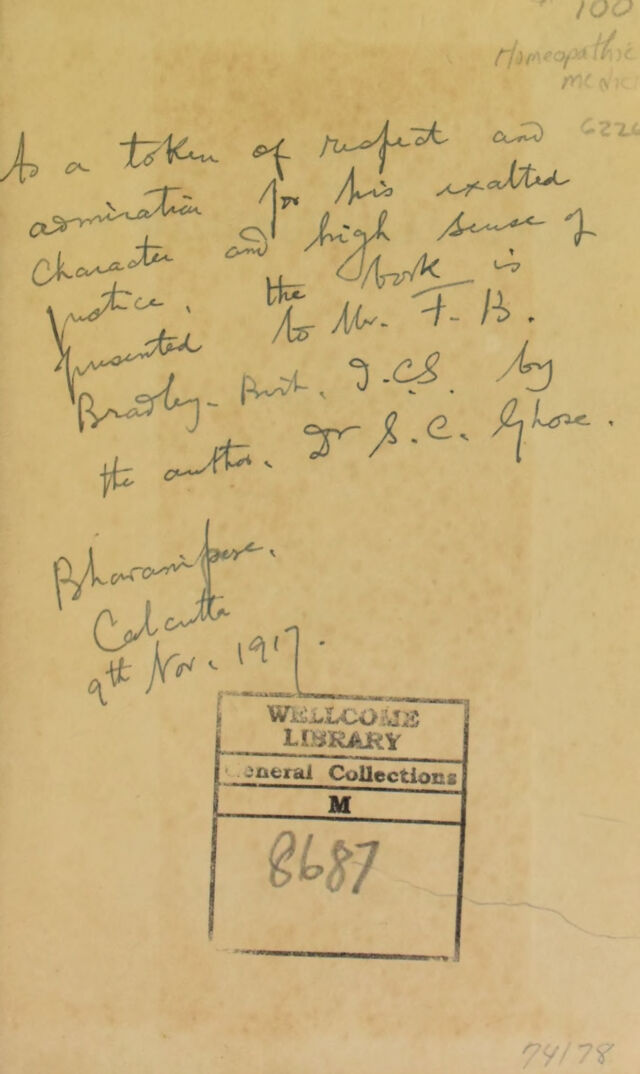 100
Homeopathic
6226
As a token of respect and
admiration for his exalted
Character and high sense of
justice, the book is
presented to Mr. F. B.
Bradley-Birt, I.C.S. by
the author, Dr S. C. Ghose.
Bhawanipore,
Calcutta
9th Nov. 1917.
WELLCOME
LIBRARY
General Collections
M
8687
74178